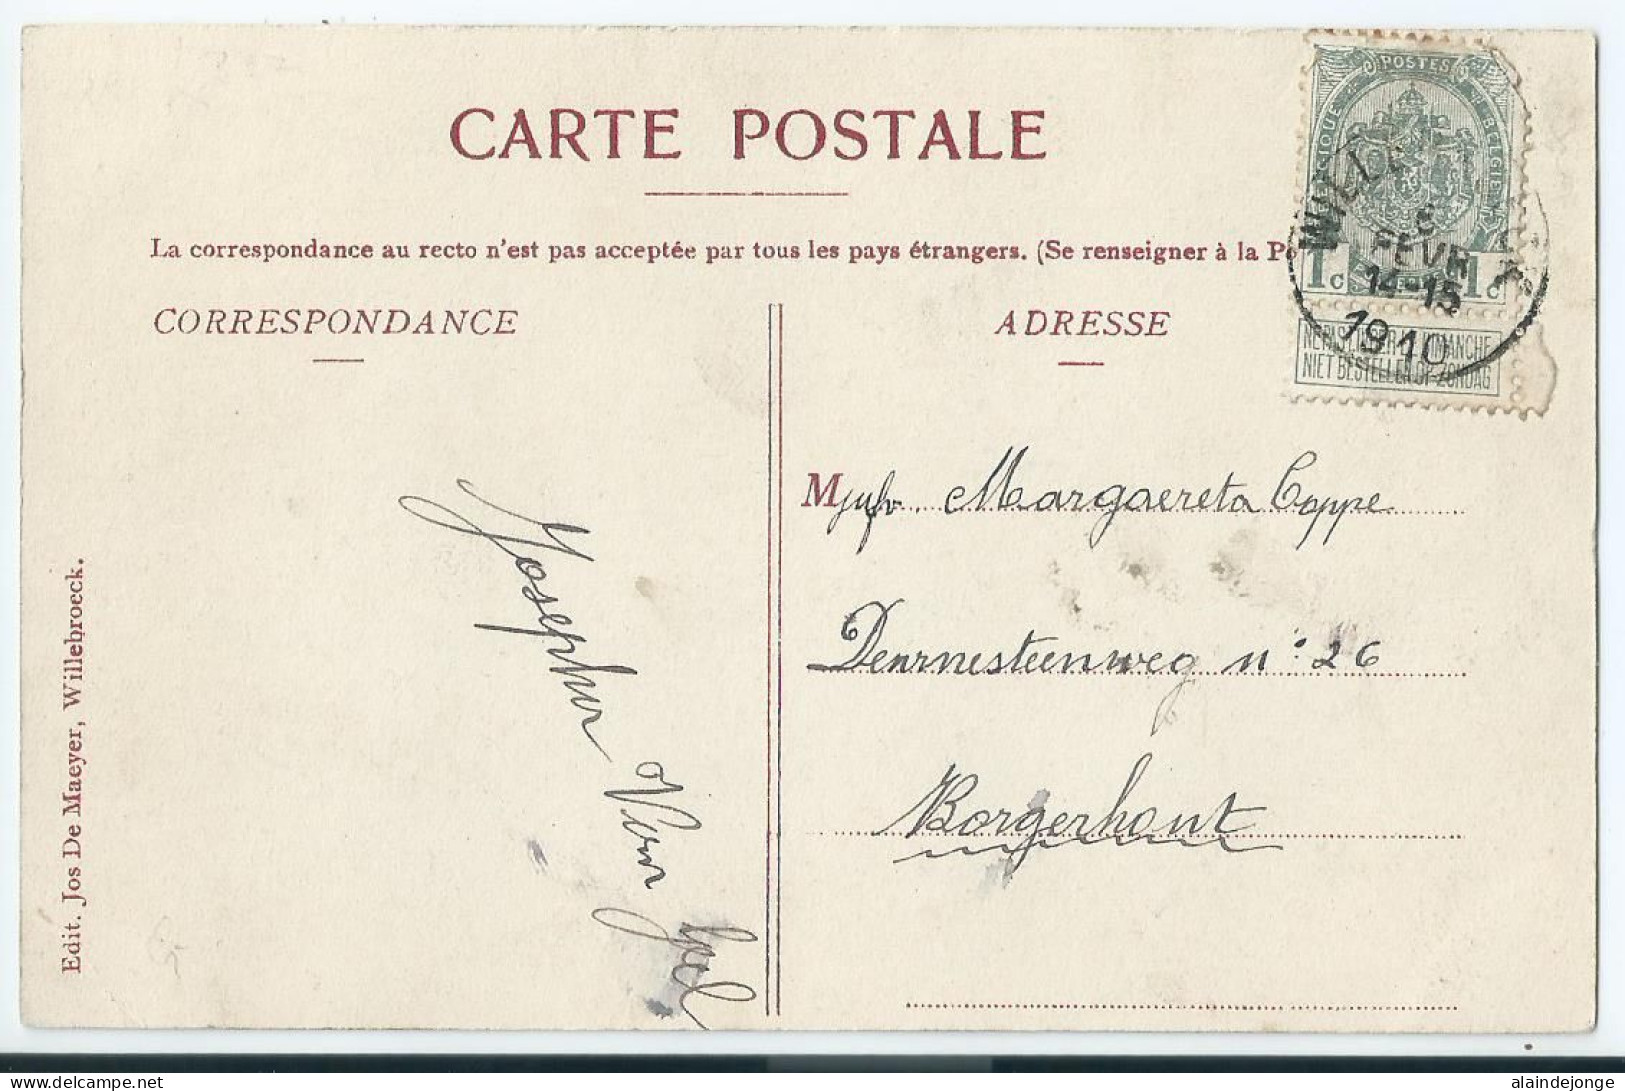 CARTE POSTALE
La correspondance au recto n'est pas acceptée par tous les pays étrangers. (Se renseigner à la Po
CORRESPONDANCE
ADRESSE
POSTES
BELGIQUE
BELGIË
1c 1c
NE PAS LIVRER LE DIMANCHE
NIET BESTELLEN OP ZONDAG
WILLE
FEVR
14-15
1910
Mejufr. Margaereta Coppe
Deurnesteenweg n° 26
Borgerhout
Josephus Van
Edit. Jos De Maeyer, Willebroeck.
alaindejonge